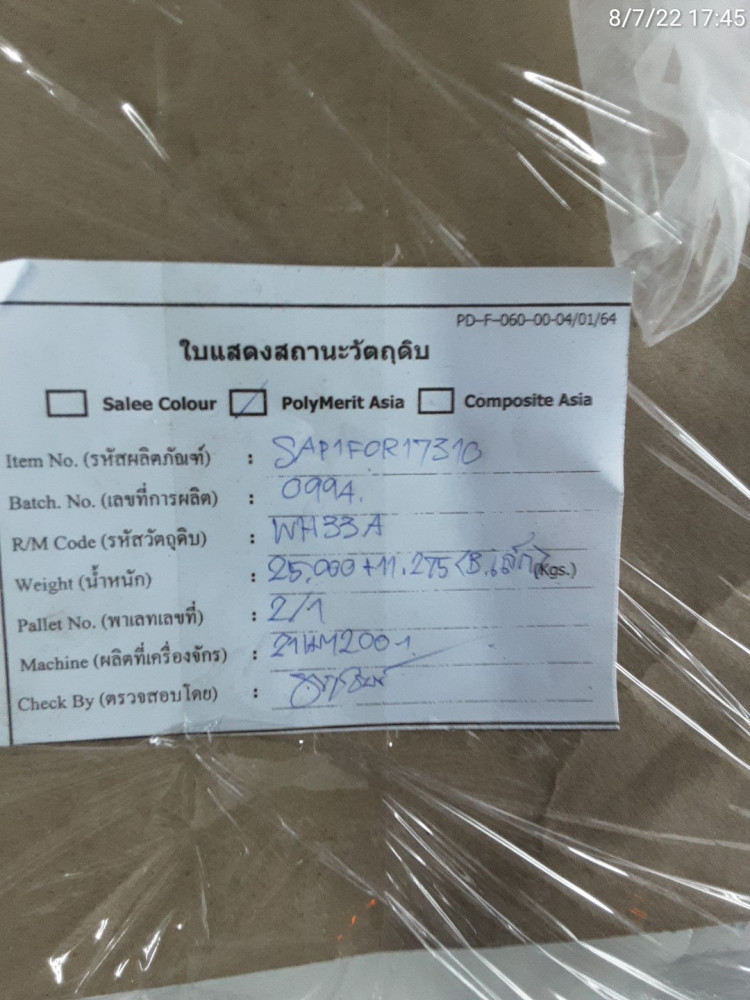 8/7/22 17:45
PD-F-060-00-04/01/64
ใบแสดงสถานะวัตถุดิบ
Salee Colour PolyMerit Asia Composite Asia
Item No. (รหัสผลิตภัณฑ์) : SAP1FOR17310
Batch. No. (เลขที่การผลิต) : 0994.
R/M Code (รหัสวัตถุดิบ) : WH33A
Weight (น้ำหนัก) : 25.000+11.275 (B.เล็ก) (Kgs.)
Pallet No. (พาเลทเลขที่) : 2/1
Machine (ผลิตที่เครื่องจักร) :
Check By (ตรวจสอบโดย) :